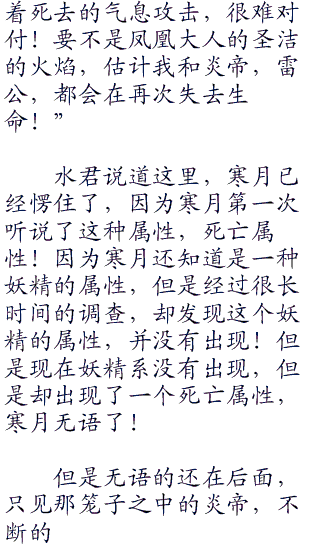 着死去的气息攻击，很难对
付！要不是凤凰大人的圣洁
的火焰，估计我和炎帝，雷
公，都会在再次失去生
命！”
水君说道这里，寒月已
经愣住了，因为寒月第一次
听说了这种属性，死亡属
性！因为寒月还知道是一种
妖精的属性，但是经过很长
时间的调查，却发现这个妖
精的属性，并没有出现！但
是现在妖精系没有出现，但
是却出现了一个死亡属性，
寒月无语了！
但是无语的还在后面，
只见那笼子之中的炎帝，不
断的